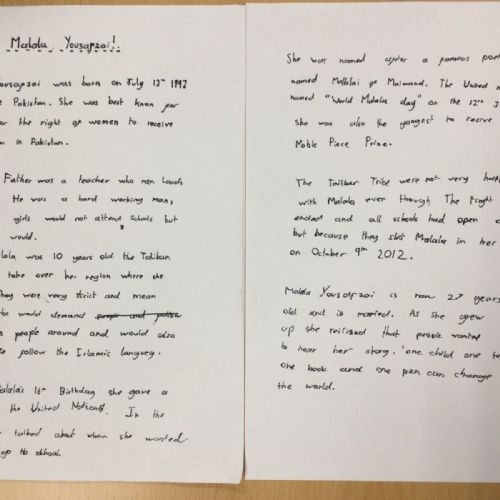 Malala Yousafzai!
Yousafzai was born on July 13th 1997
Pakistan. She was best knon for
for the right of women to receive
in Pakistan.
Father was a teacher who ran
He was a hard working man,
girls would not attend schools but
would.
was 10 years old the Taliban
take over her region where she
They were very strict and mean
who would demand
people around and would also
follow the Islamic langueg.
Malala's 16th Birthday she gave a
the United Nations. In the
talked about when she wanted
go to skhool.
She was named after a famous poet
named Mallalai of Maiwand. The United
named "World Malala day" on the 12th
She was also the yongest to receive
Noble Piece Prize.
The Tribe were not very
with Malala ever though The fight
ended and all schools had open
but because they shot Malala in her
on October 9th 2012.
Malala Yousafzai is now 27 years
old and is married. As she grew
up she relised that people wanted
to hear her story. 'one child one
one book and one pen can change
the world.